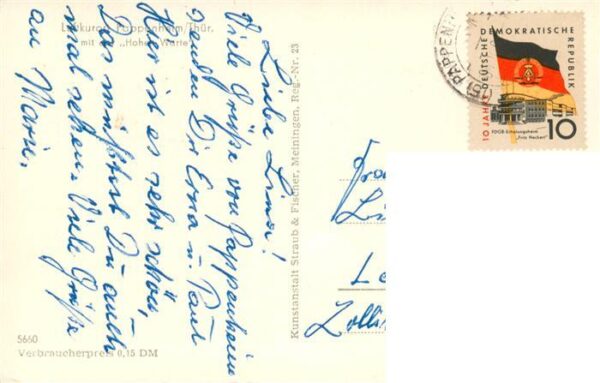 Luftkurort Pappenheim/Thür.
mit der „Hohen Warte"
Liebe Luise!
Viele Grüße von Pappenheim
senden Dir Erna u. Paul
Hier ist es sehr schön,
Das müßtest Du auch
mal sehen. Viele Grüße
an Marie.
5660
Verbraucherpreis 0,15 DM
Kunstanstalt Straub & Fischer, Meiningen, Reg.-Nr. 23
PAPPENH
10 JAHRE DEUTSCHE DEMOKRATISCHE REPUBLIK
FDGB-Erholungsheim
„Fritz Heckert"
10